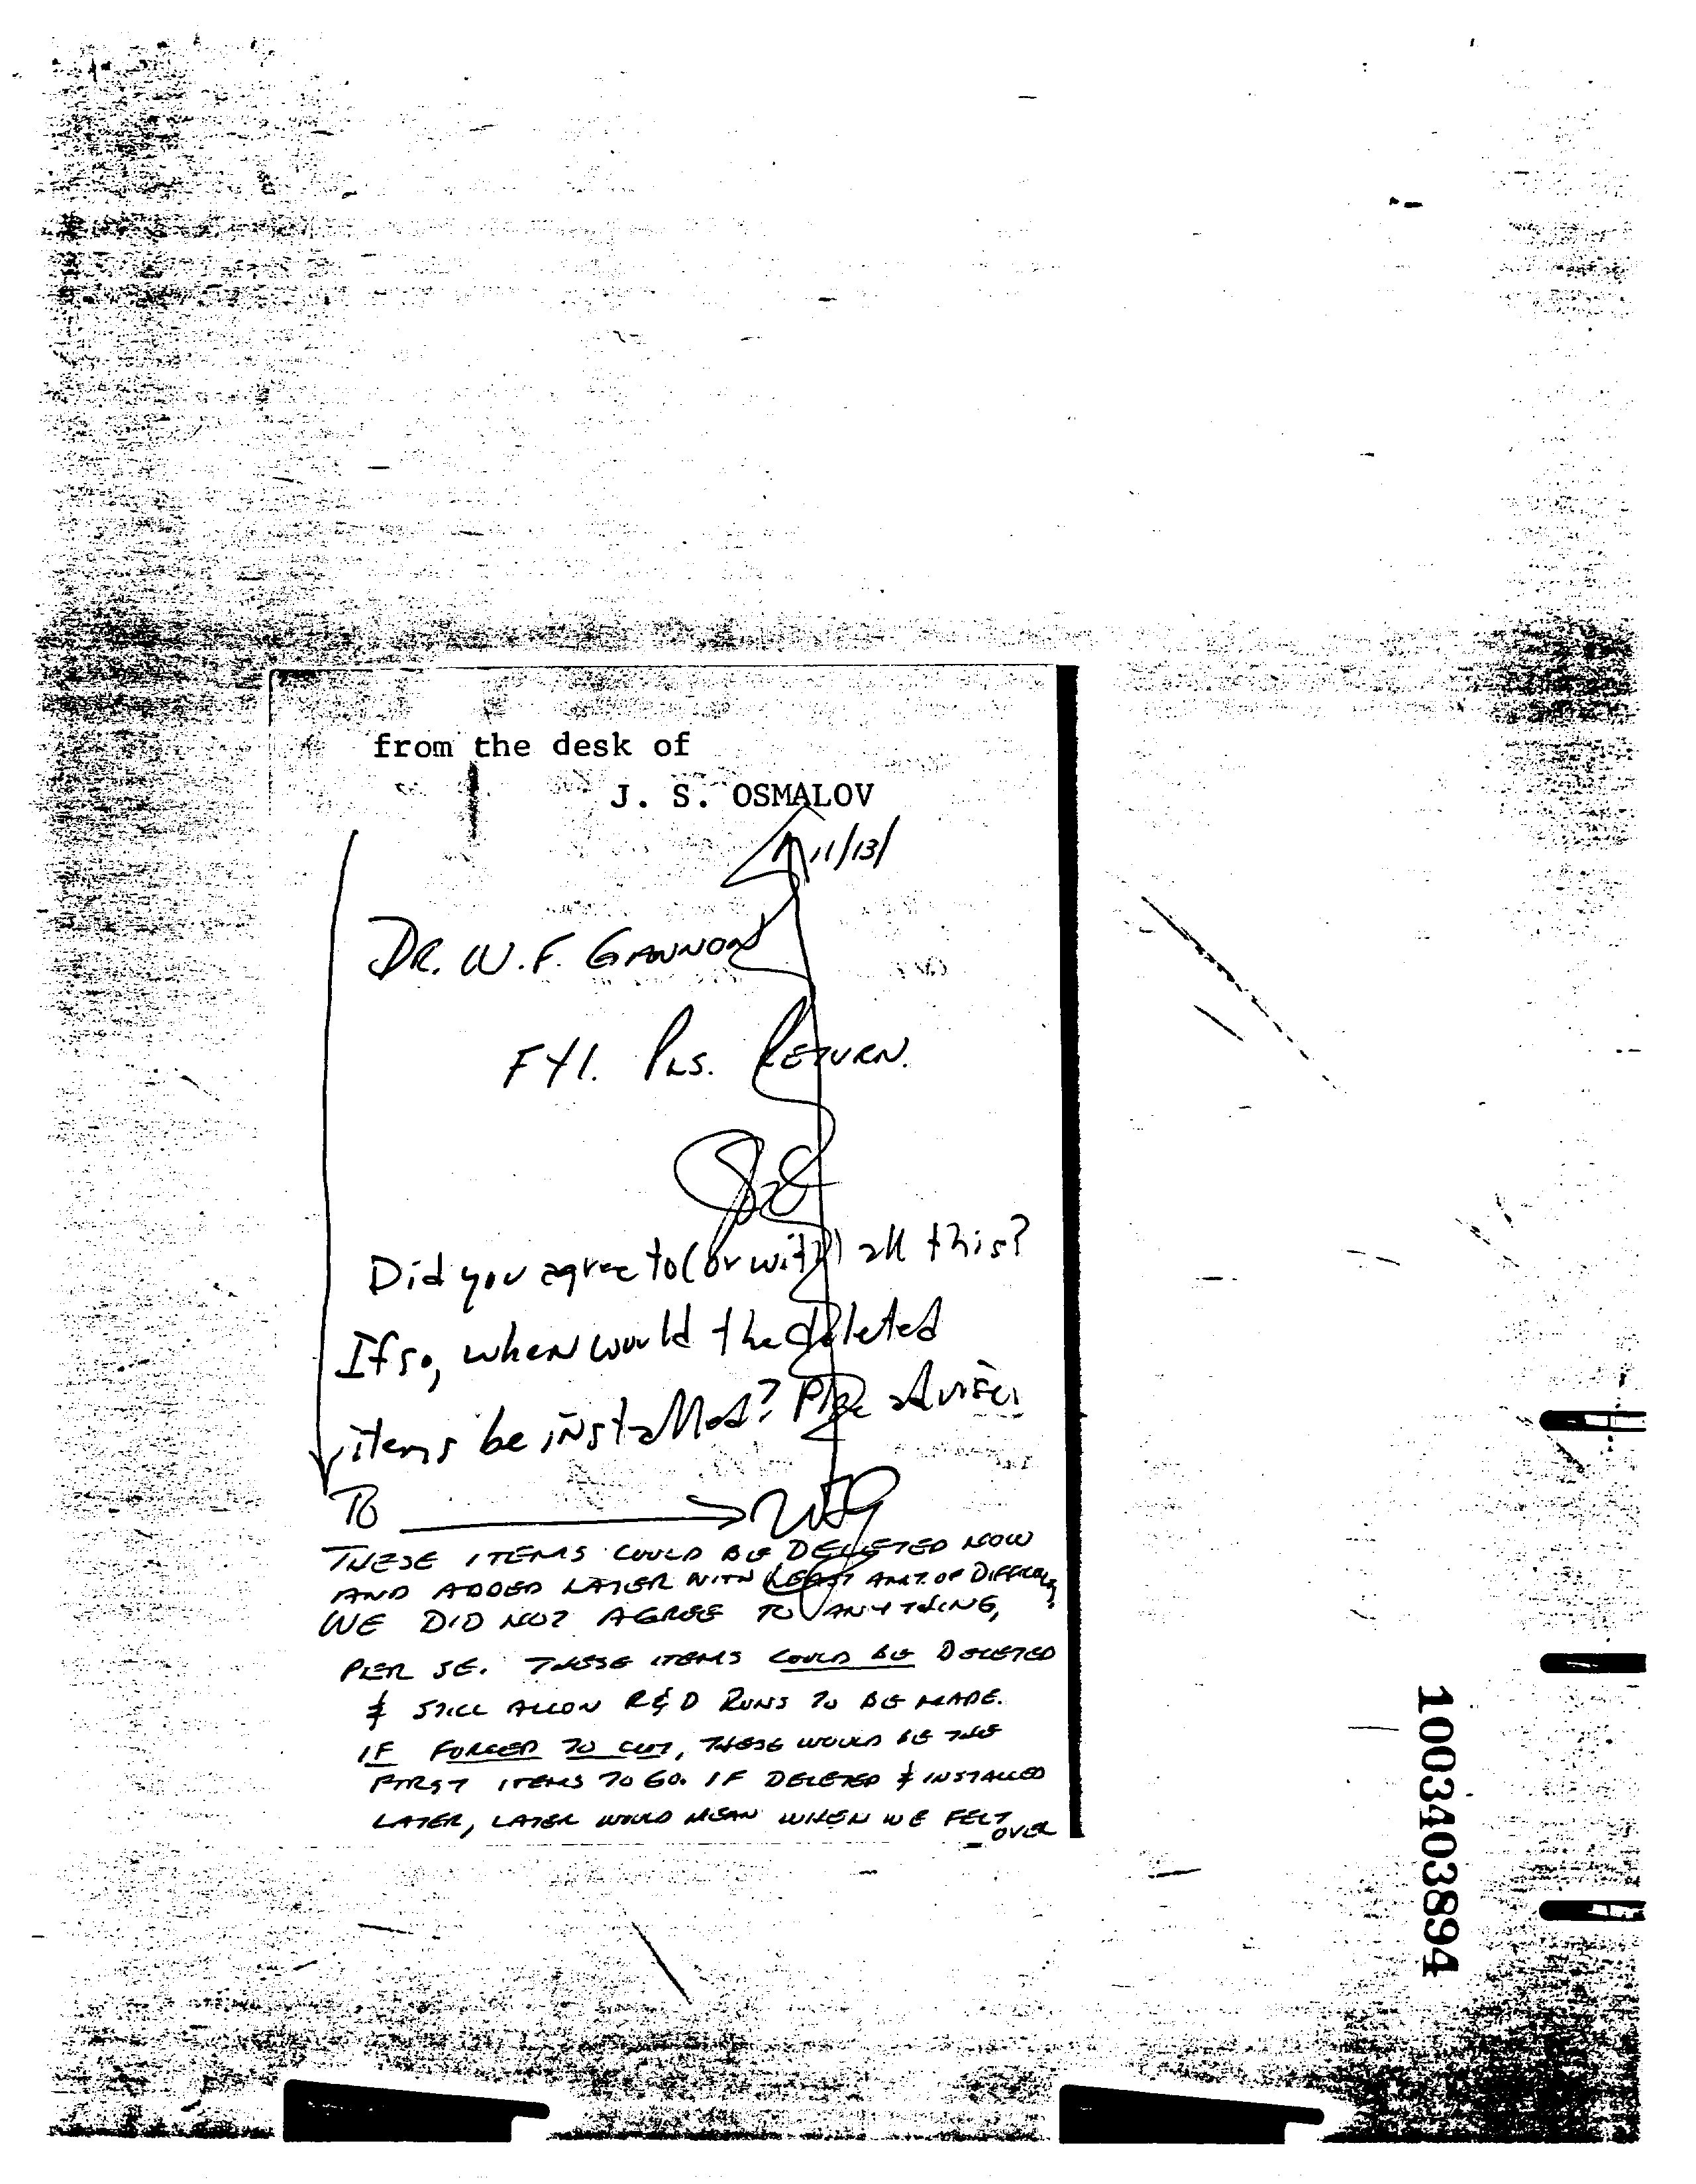 from the desk of
J. S. OSMALOV
11/13/
DR. W. F. GANNON
FYI. PLS. RETURN.
Did you agree to (or with) all this?
If so, when would the deleted
items be installed? Pls advise.
TO
THESE ITEMS COULD BE DELETED NOW
AND ADDED LATER WITH LEAST AMT. OF DIFFICULTY.
WE DID NOT AGREE TO ANYTHING,
PER SE. THESE ITEMS COULD BE DELETED
& STILL ALLOW R&D RUNS TO BE MADE.
IF FORCED TO CUT, THESE WOULD BE THE
FIRST ITEMS TO GO. IF DELETED & INSTALLED
LATER, LATER WOULD MEAN WHEN WE FELT
OVER
1003403894